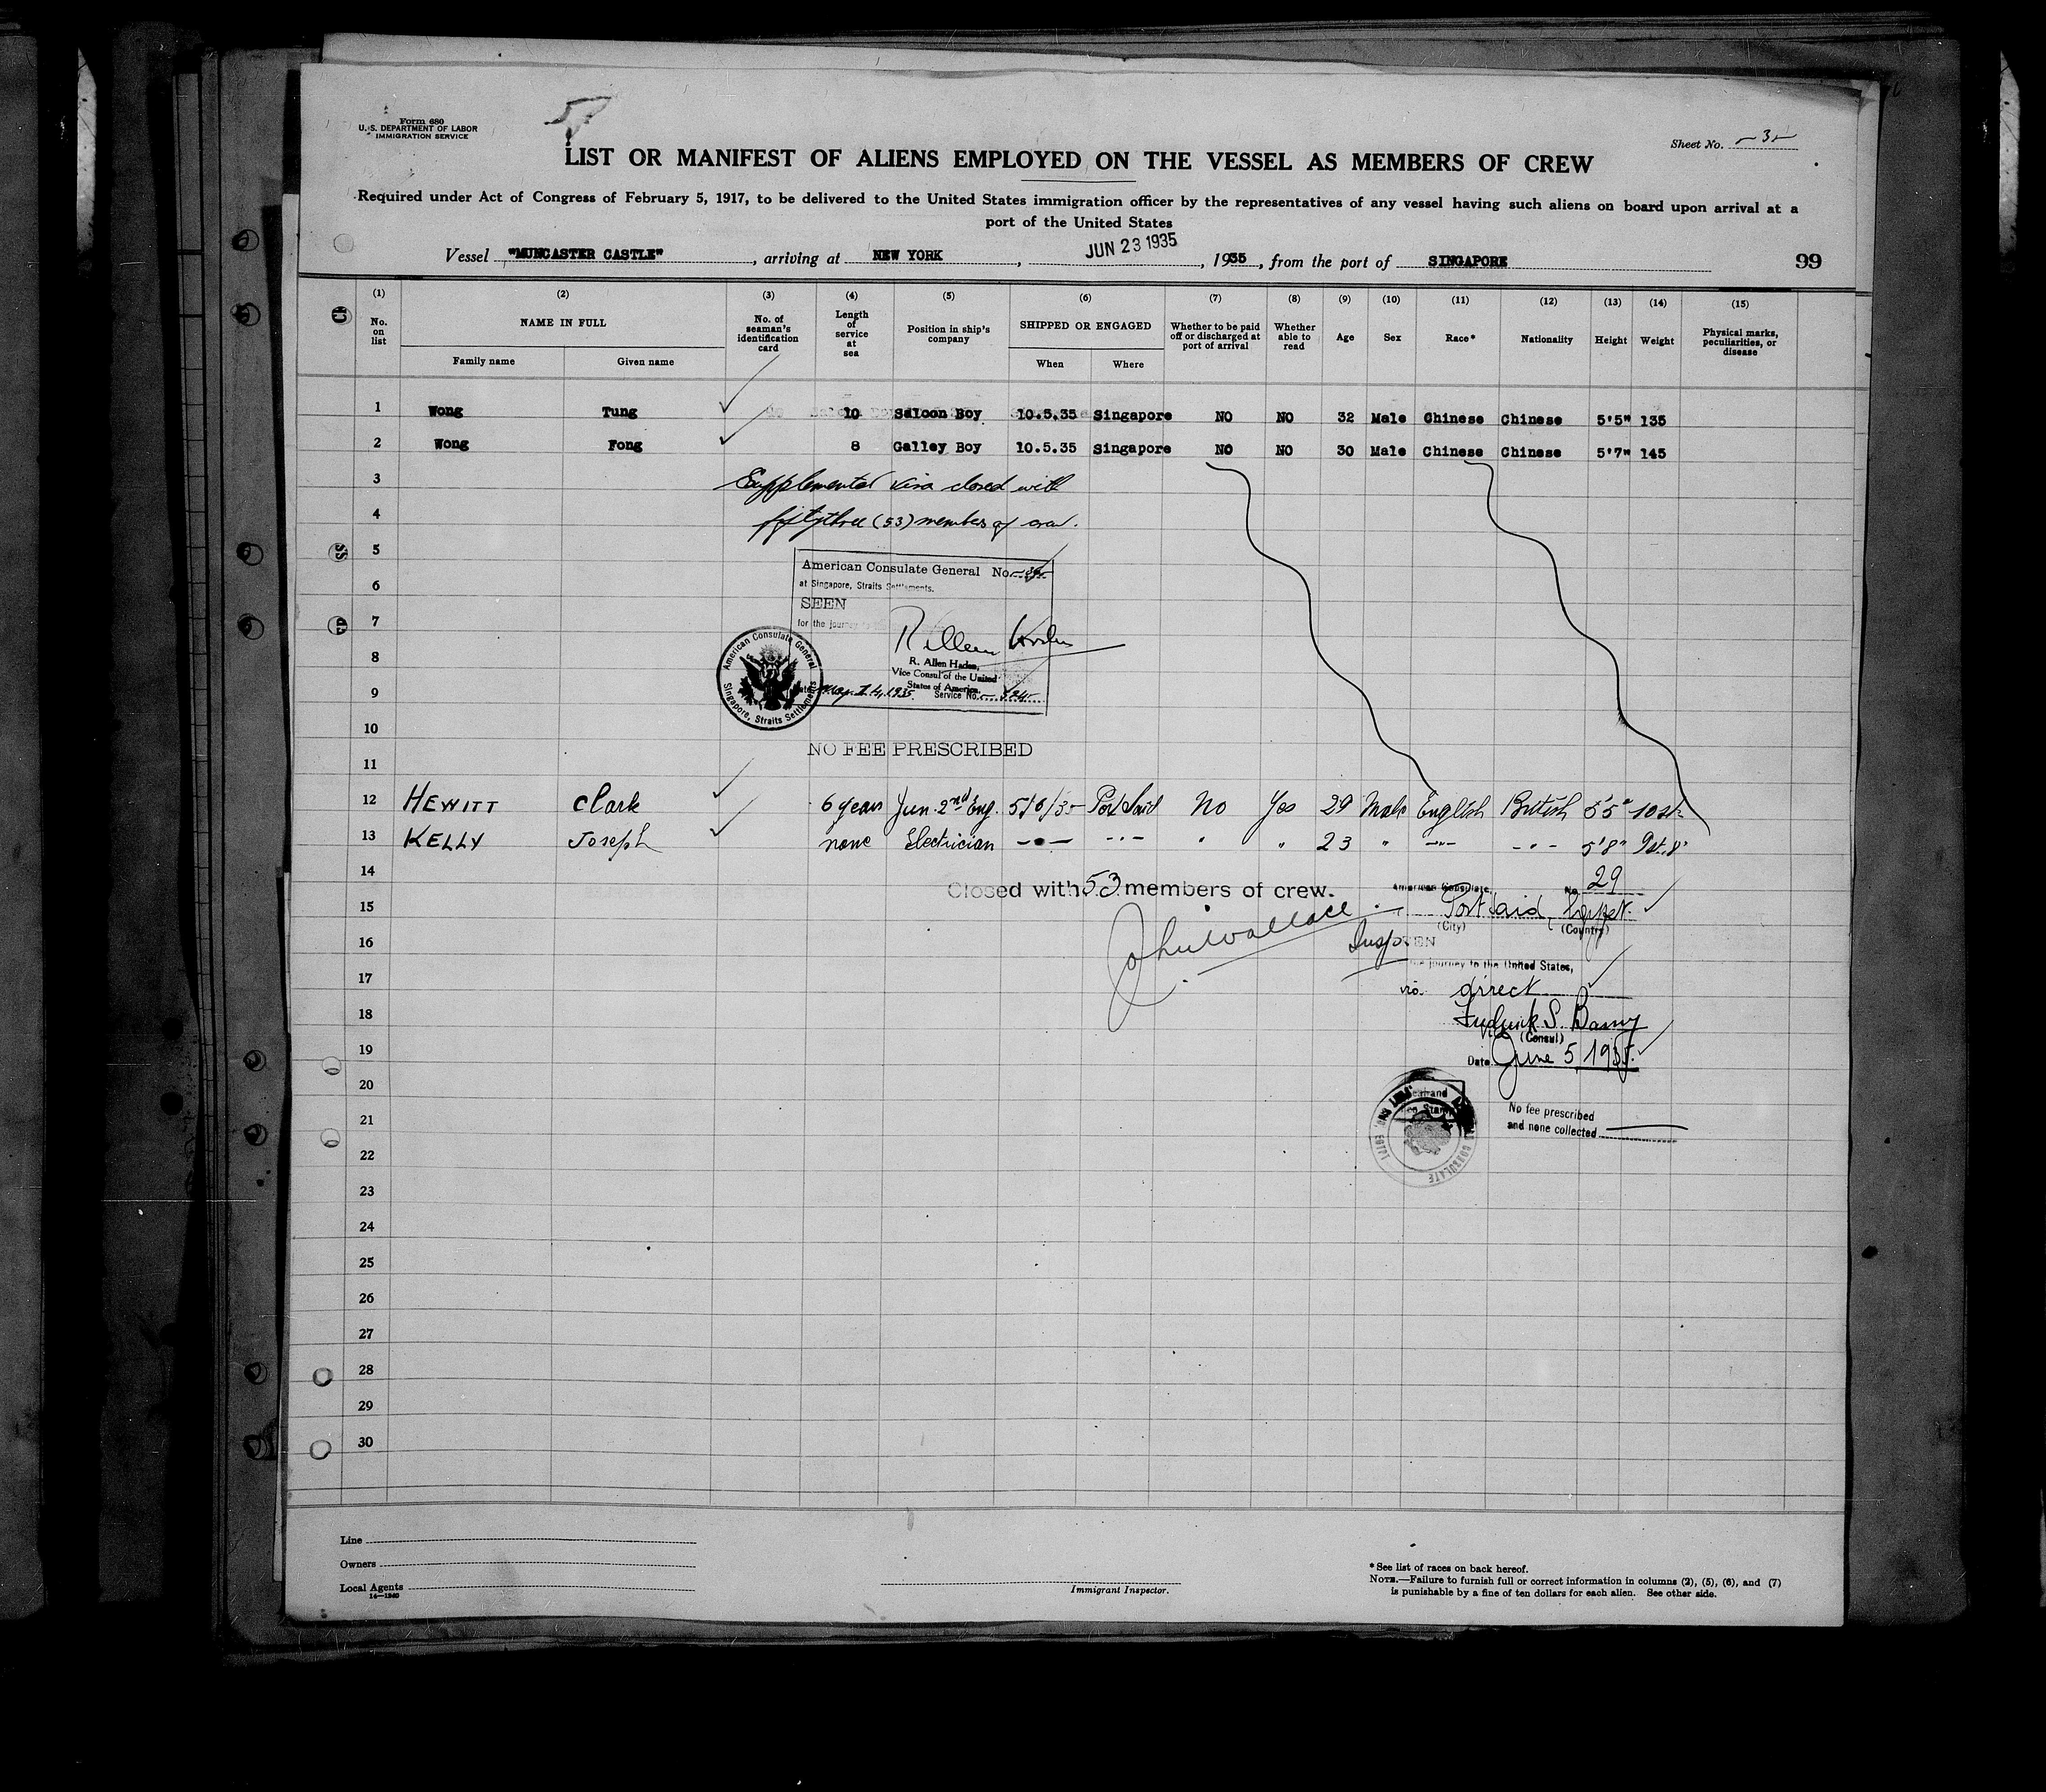 Form 680
U. S. DEPARTMENT OF LABOR
IMMIGRATION SERVICE
Sheet No. -3-
LIST OR MANIFEST OF ALIENS EMPLOYED ON THE VESSEL AS MEMBERS OF CREW
Required under Act of Congress of February 5, 1917, to be delivered to the United States immigration officer by the representatives of any vessel having such aliens on board upon arrival at a
port of the United States
Vessel "MUNCASTER CASTLE", arriving at NEW YORK, JUN 23 1935, 1935, from the port of SINGAPORE 99
(1) (2) (3) (4) (5) (6) (7) (8) (9) (10) (11) (12) (13) (14) (15)
No. on list NAME IN FULL Family name Given name No. of seaman's identification card Length of service at sea Position in ship's company SHIPPED OR ENGAGED When Where Whether to be paid off or discharged at port of arrival Whether able to read Age Sex Race* Nationality Height Weight Physical marks, peculiarities, or disease
1 Wong Tung 10 Saloon Boy 10.5.35 Singapore NO NO 32 Male Chinese Chinese 5'5" 135
2 Wong Fong 8 Galley Boy 10.5.35 Singapore NO NO 30 Male Chinese Chinese 5'7" 145
3 Supplemental visa closed with
4 fifty three (53) members of crew.
5
American Consulate General No.
6 at Singapore, Straits Settlements.
SEEN
7 for the journey
8
R. Allen Haden,
Vice Consul of the United
States of America.
9 1935 Service No.
American Consulate General Singapore, Straits Settlements
10
NO FEE PRESCRIBED
11
12 HEWITT Clark 6 years Jun. 2nd Eng. 5/6/35 Port Said No Yes 29 Male English British 5'5" 10 st
13 KELLY Joseph none Electrician -"- -"- " " 23 " -"- -"- 5'8" 9 st. 8"
14 Closed with 53 members of crew. American Consulate, No. 29
15 Port Said, Egypt.
(City) (Country)
16 John Wallace Insp
17 journey to the United States,
via. direct
18 Frederick S. Barny
(Consul)
19 Date June 5 1935.
20
No fee prescribed
21 and none collected
22
23
24
25
26
27
28
29
30
Line
Owners
Local Agents
14—1240
Immigrant Inspector.
* See list of races on back hereof.
NOTE.—Failure to furnish full or correct information in columns (2), (5), (6), and (7)
is punishable by a fine of ten dollars for each alien. See other side.